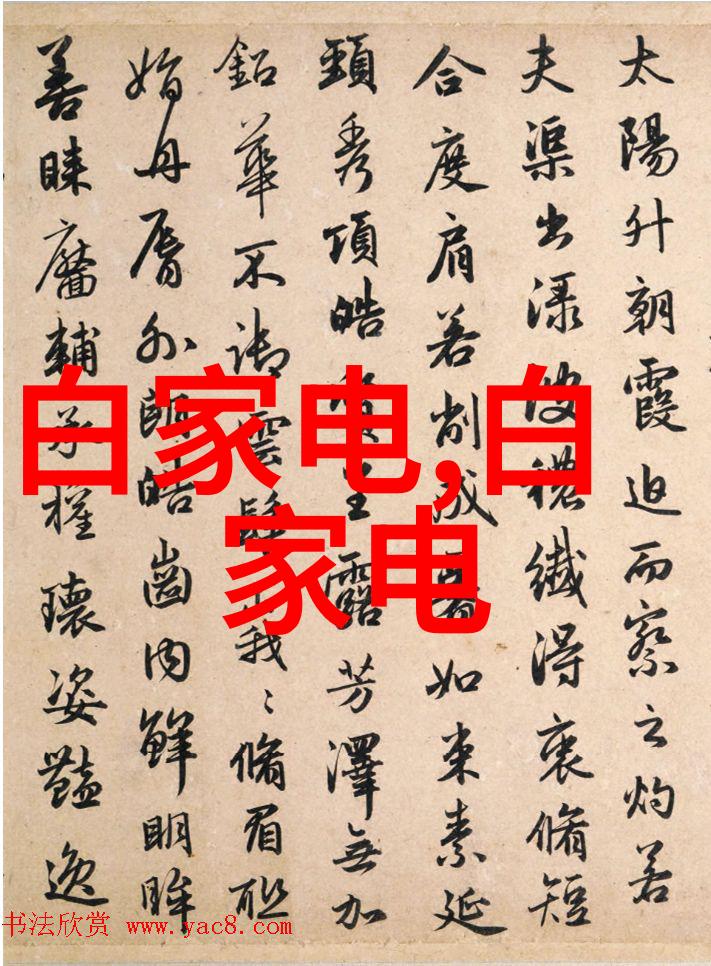 太陽升朝霞迫而察之灼若
夫渠出淥波穠纖得衷脩短
合度肩若削成如束素延
頸秀項皓質呈露芳澤無加
鉛華不御雲髻峩〻脩眉联
娟丹脣外朗皓齒内鮮明眸
善睞靨輔承權瓌姿豔逸
白家电,白
家电
书法欣赏 www.yac8.com